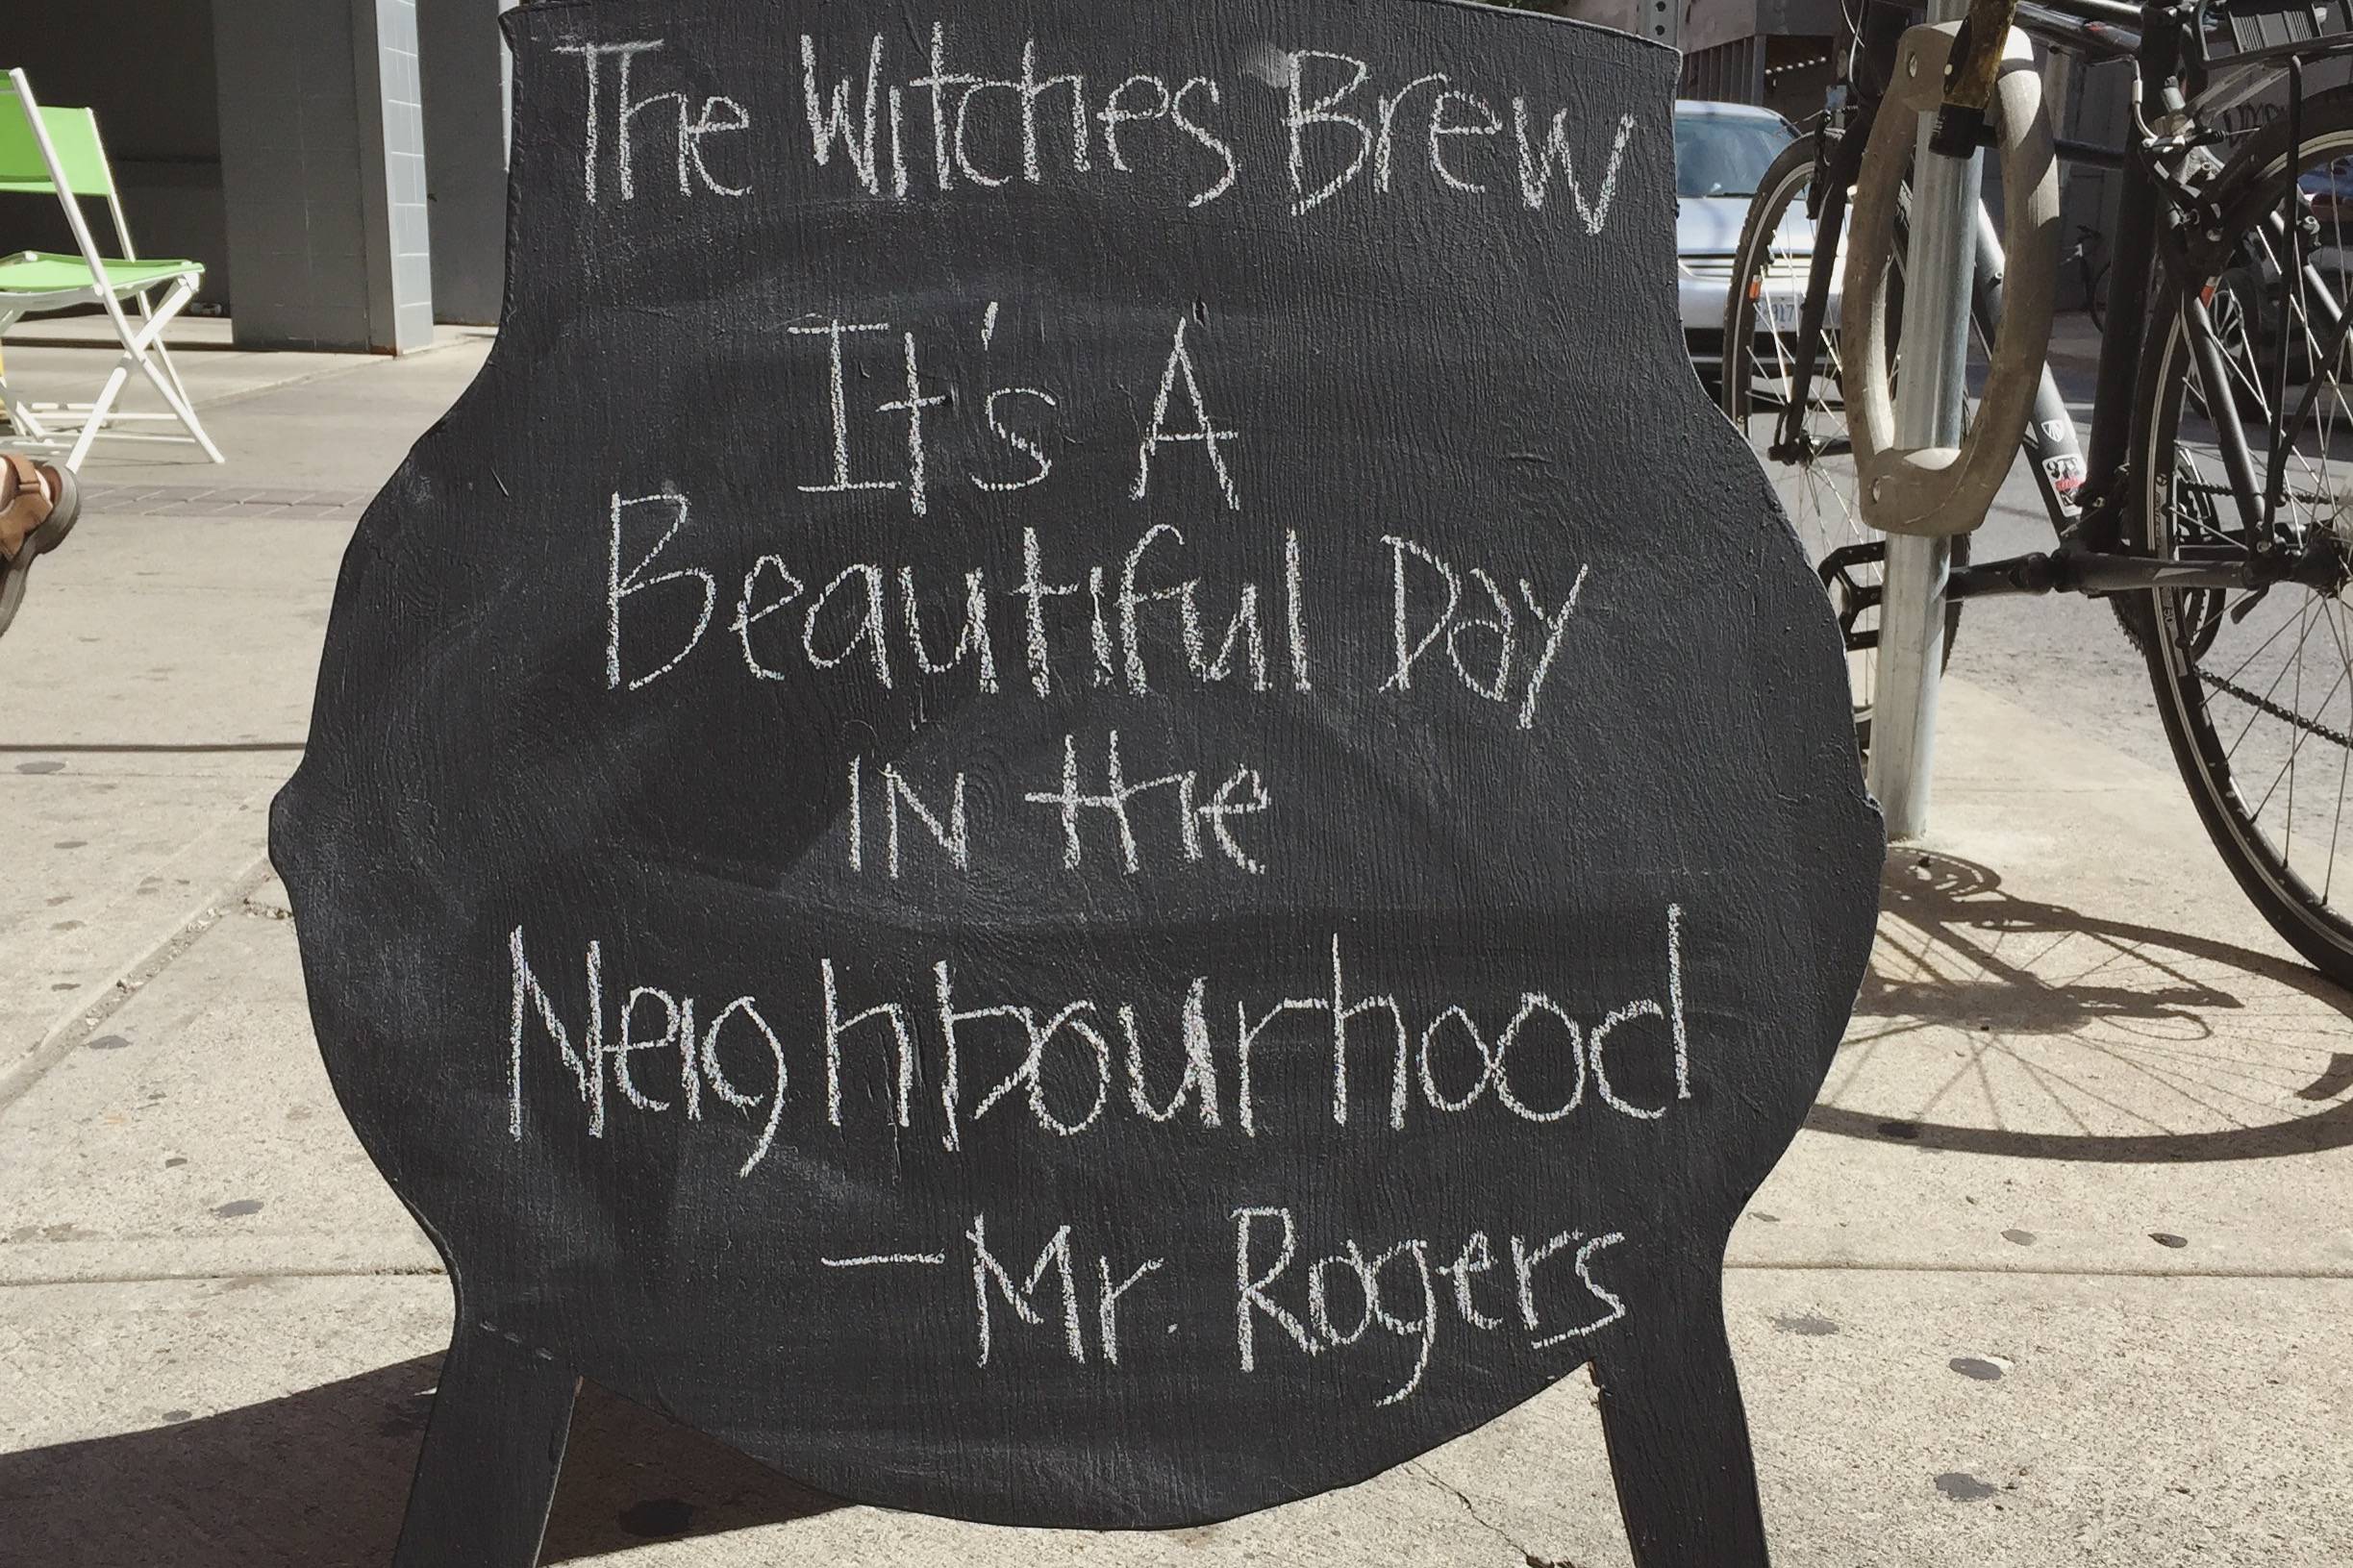 The Witches Brew
It's A
Beautiful Day
IN the
Neighbourhood
- Mr. Rogers